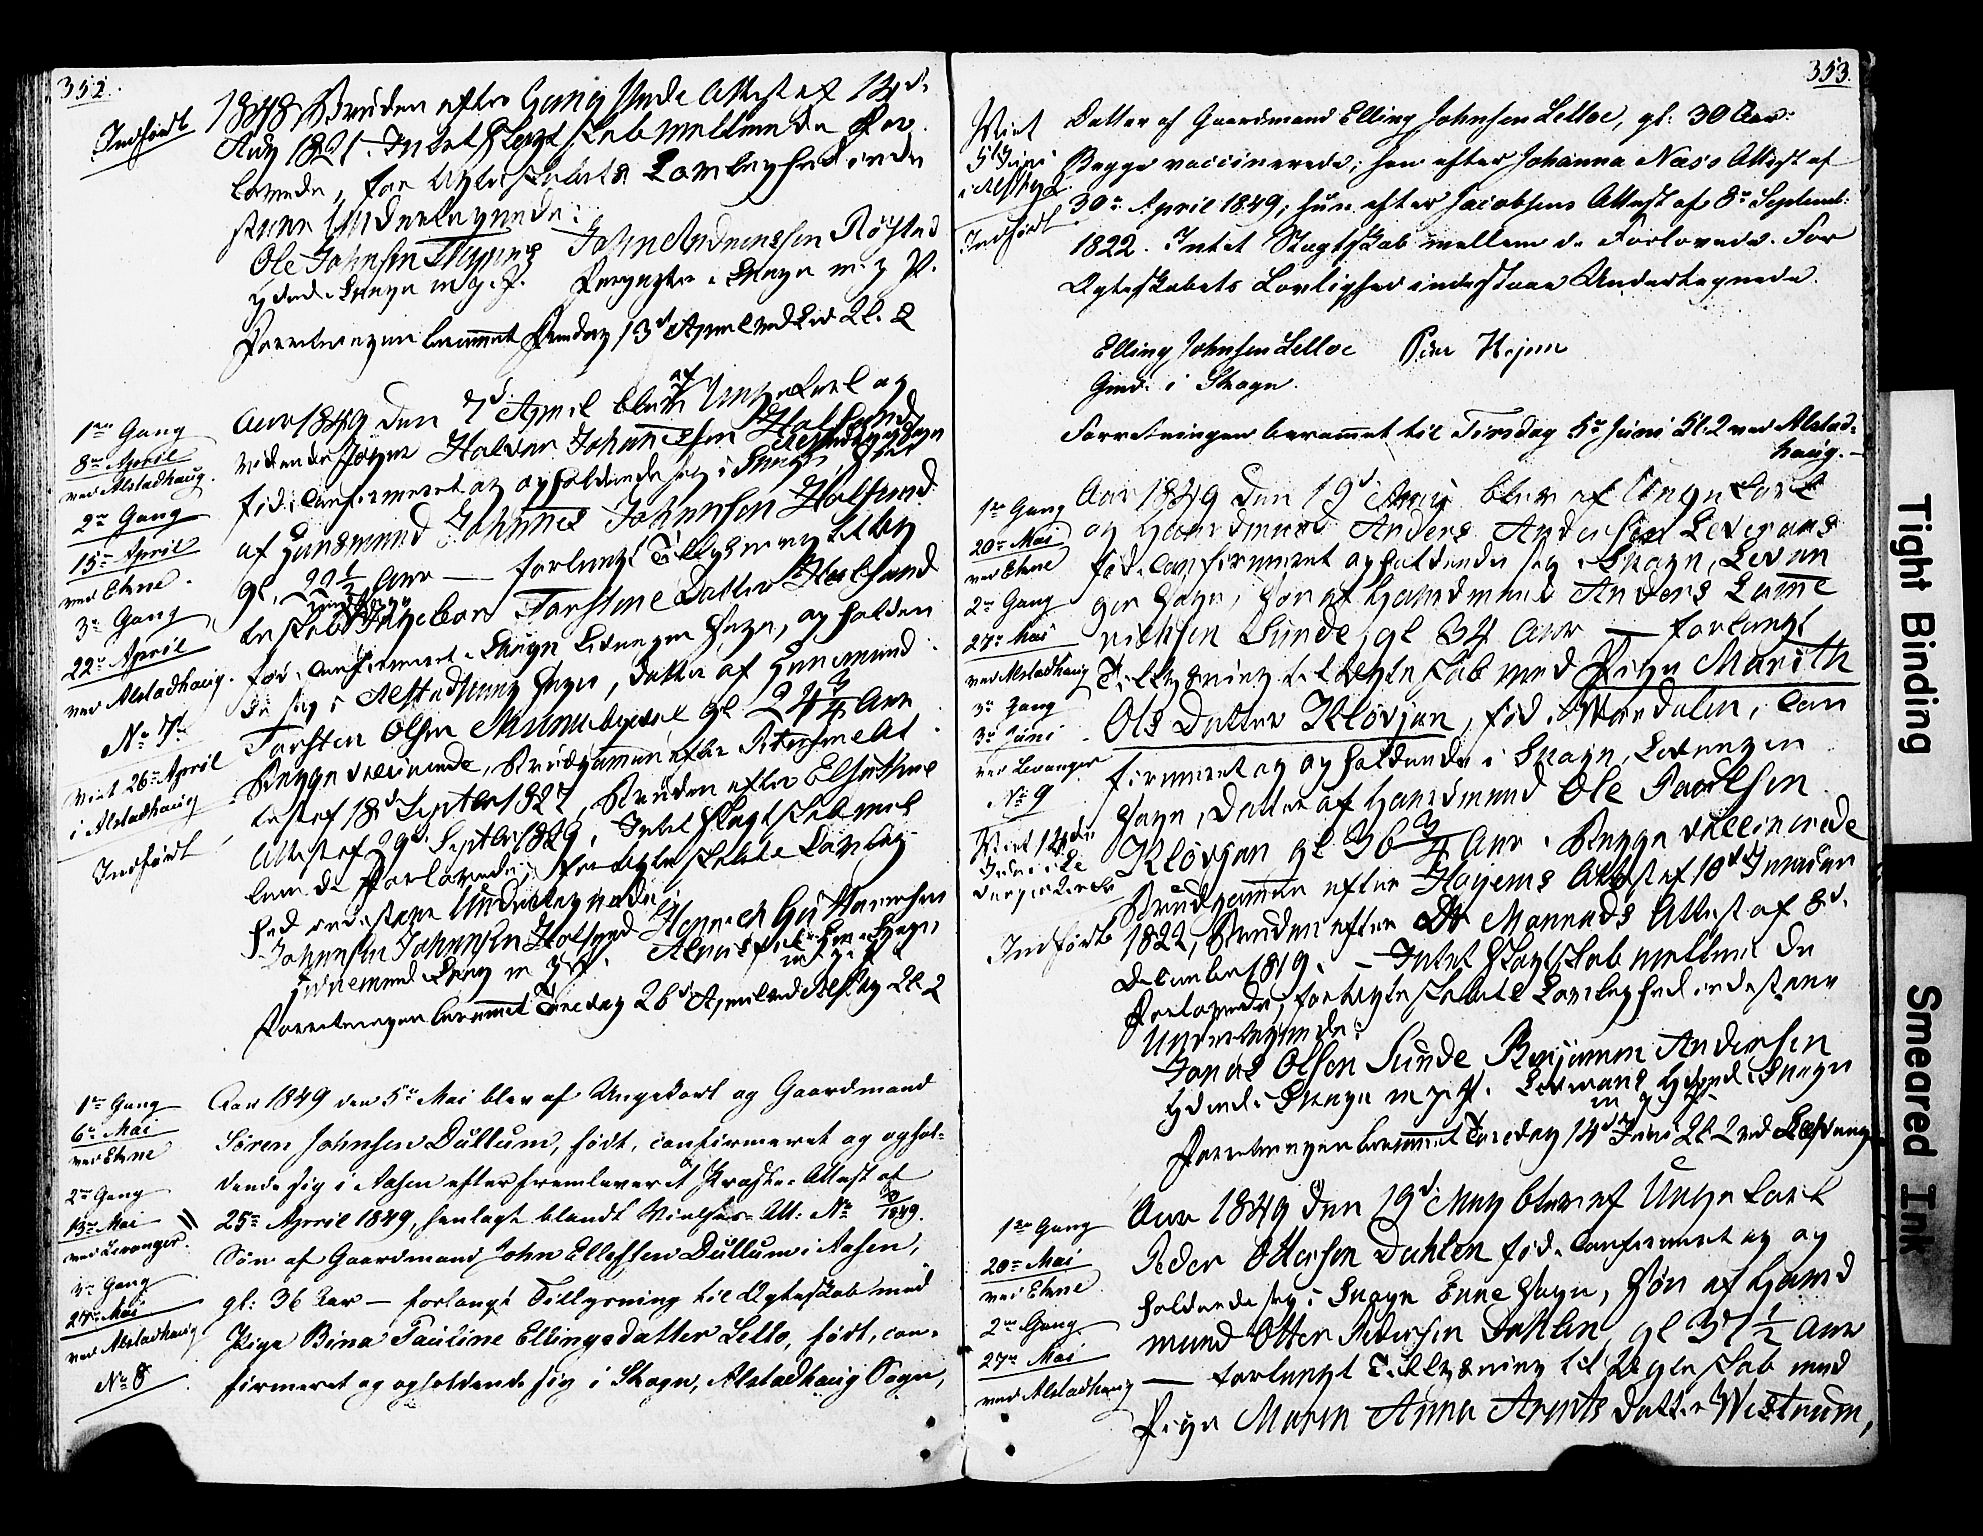 352.
Indført
1848, Bruden efter Attest af
Aug 1821. Intet Slægtskab mellem de For
lovede, for Ægteskabets Lovlighed inde
staae Undertegnede:
Ole Johnsen John Andreassen Røstad
i Skogn m. p. P. i Skogn m. p. P.
Forretningen berammet 13de April ved Kl. 2
1ste Gang
8de April
ved Alstadhaug.
2den Gang
15de April
ved Ekne.
3die Gang
22de April
ved Alstadhaug.
No 7.
Viet 26de April
i Alstadhaug
Indført
Aar 1849 den 7d April blev af Ungekarl og
Halvor Johannesen Halsand
fød, confirmeret og opholdende sig i Skogn
af Huusmand Johannes Johnsen Halsand
gl. 22½ Aar — forlangt Tillysning til Æg
teskab Pige Ingebor Torstine Datter Halsand
fød, confirmeret i Skogn Levanger Sogn, og holden
de sig i Alstadhaug Sogn, Datter af Huusmand
Torsten Olsen gl 24¾ Aar
Begge vaccinerede, Brudgommen efter At
test af 18d Septbr 1827, Bruden efter
Attest af 29d Septbr 1829. Intet Slægtskab mel
lem de Forlovede, for Ægteskabets Lovlig
hed indestaae Undertegnede:
Johannes Johnsen Halsand
Huusmand i Skogn m. p. P.
Forretningen berammet Torsdag 26d April ved Alsthg Kl 2
1ste Gang
6te Mai
ved Ekne
2den Gang
13de Mai
ved Levanger.
3die Gang
27de Mai
ved Alstadhaug
No 8
Aar 1849 den 5te Mai blev af Ungekarl og Gaardmand
Sören Johnsen Dullum, født, confirmeret og ophol-
dende sig i Aasen efter fremleveret Præste-Attest af
25de April 1849, henlagt blandt Vielses-Att: No /1849.
Søn af Gaardmand John Ellefsen Dullum i Aasen,
gl: 36 Aar — forlangt Tillysning til Ægteskab med
Pige Bina Pauline Ellingsdatter Lello, født, con-
firmeret og opholdende sig i Skogn, Alstadhaug Sogn,
353.
Viet
5te Juni
i Alsthg.
Indført
Datter af Gaardmand Elling Johnsen Lelloe, gl: 30 Aar.
Begge vaccinerede; han efter Johanna Næss Attest af
30te April 1849; hun efter Jacobsens Attest af 8de Septemb:
1822. Intet Slægtskab mellem de Forlovede. For
Ægteskabets Lovlighed indestaae Undertegnede.
Elling Johnsen Lelloe Peer Hojem
Gmd. i Skogn.
Forretningen berammet til Tirsdag 5te Juni Kl. 2 ved Alstad-
haug.—
1ste Gang
20de Mai
ved Ekne
2den Gang
27de Mai
ved Alstadhaug
3die Gang
3die Juni
ved Levanger
No 9
Viet 14de
Juni i Le
vanger Kirke
Indført
Aar 1849 den 19d May blev af Ungekarl
og Huusmand Anders Andersen Levrans
fød, confirmeret opholdende sig i Skogn, Levan
ger Sogn, Søn af Huusmand Anders
Sunde, gl 34 Aar — forlangt
Tillysning til Ægteskab med Pige Marith
Ols Datter Kløvjan, fød i Værdalen, con
firmeret og opholdende i Skogn, Levanger
Sogn, Datter af Huusmand Ole Paalsen
Kløvjan gl 36¾ Aar. Begge vaccinerede
Brudgommen efter Hoyems Attest af 18d Januar
1822, Bruden efter Dr Mannads Attest af 8d.
December 1819. — Intet Slægtskab mellem de
Forlovede, for Ægteskabets Lovlighed indestaae
Undertegnede:
Jonas Olsen Sunde Benjamin Andersen
i Skogn m. p. P. Levrans i Skogn
m. p. P.
Forretningen berammet Torsdag 14d Juni Kl 2 ved Levanger
1ste Gang
20de Mai
ved Ekne.
2den Gang
27de Mai
ved Alstadhaug
Aar 1849 den 19d May blev af Ungekarl
Peder Ottersen Dahlen fød, confirmeret og op
holdende sig i Skogn Ekne Sogn, Søn af Huus
mand Otter Pedersen Dahlen, gl 37½ Aar
— forlangt Tillysning til Ægteskab med
Pige Maren Anna Arnts Datter Westrum,
Tight Binding
Smeared Ink